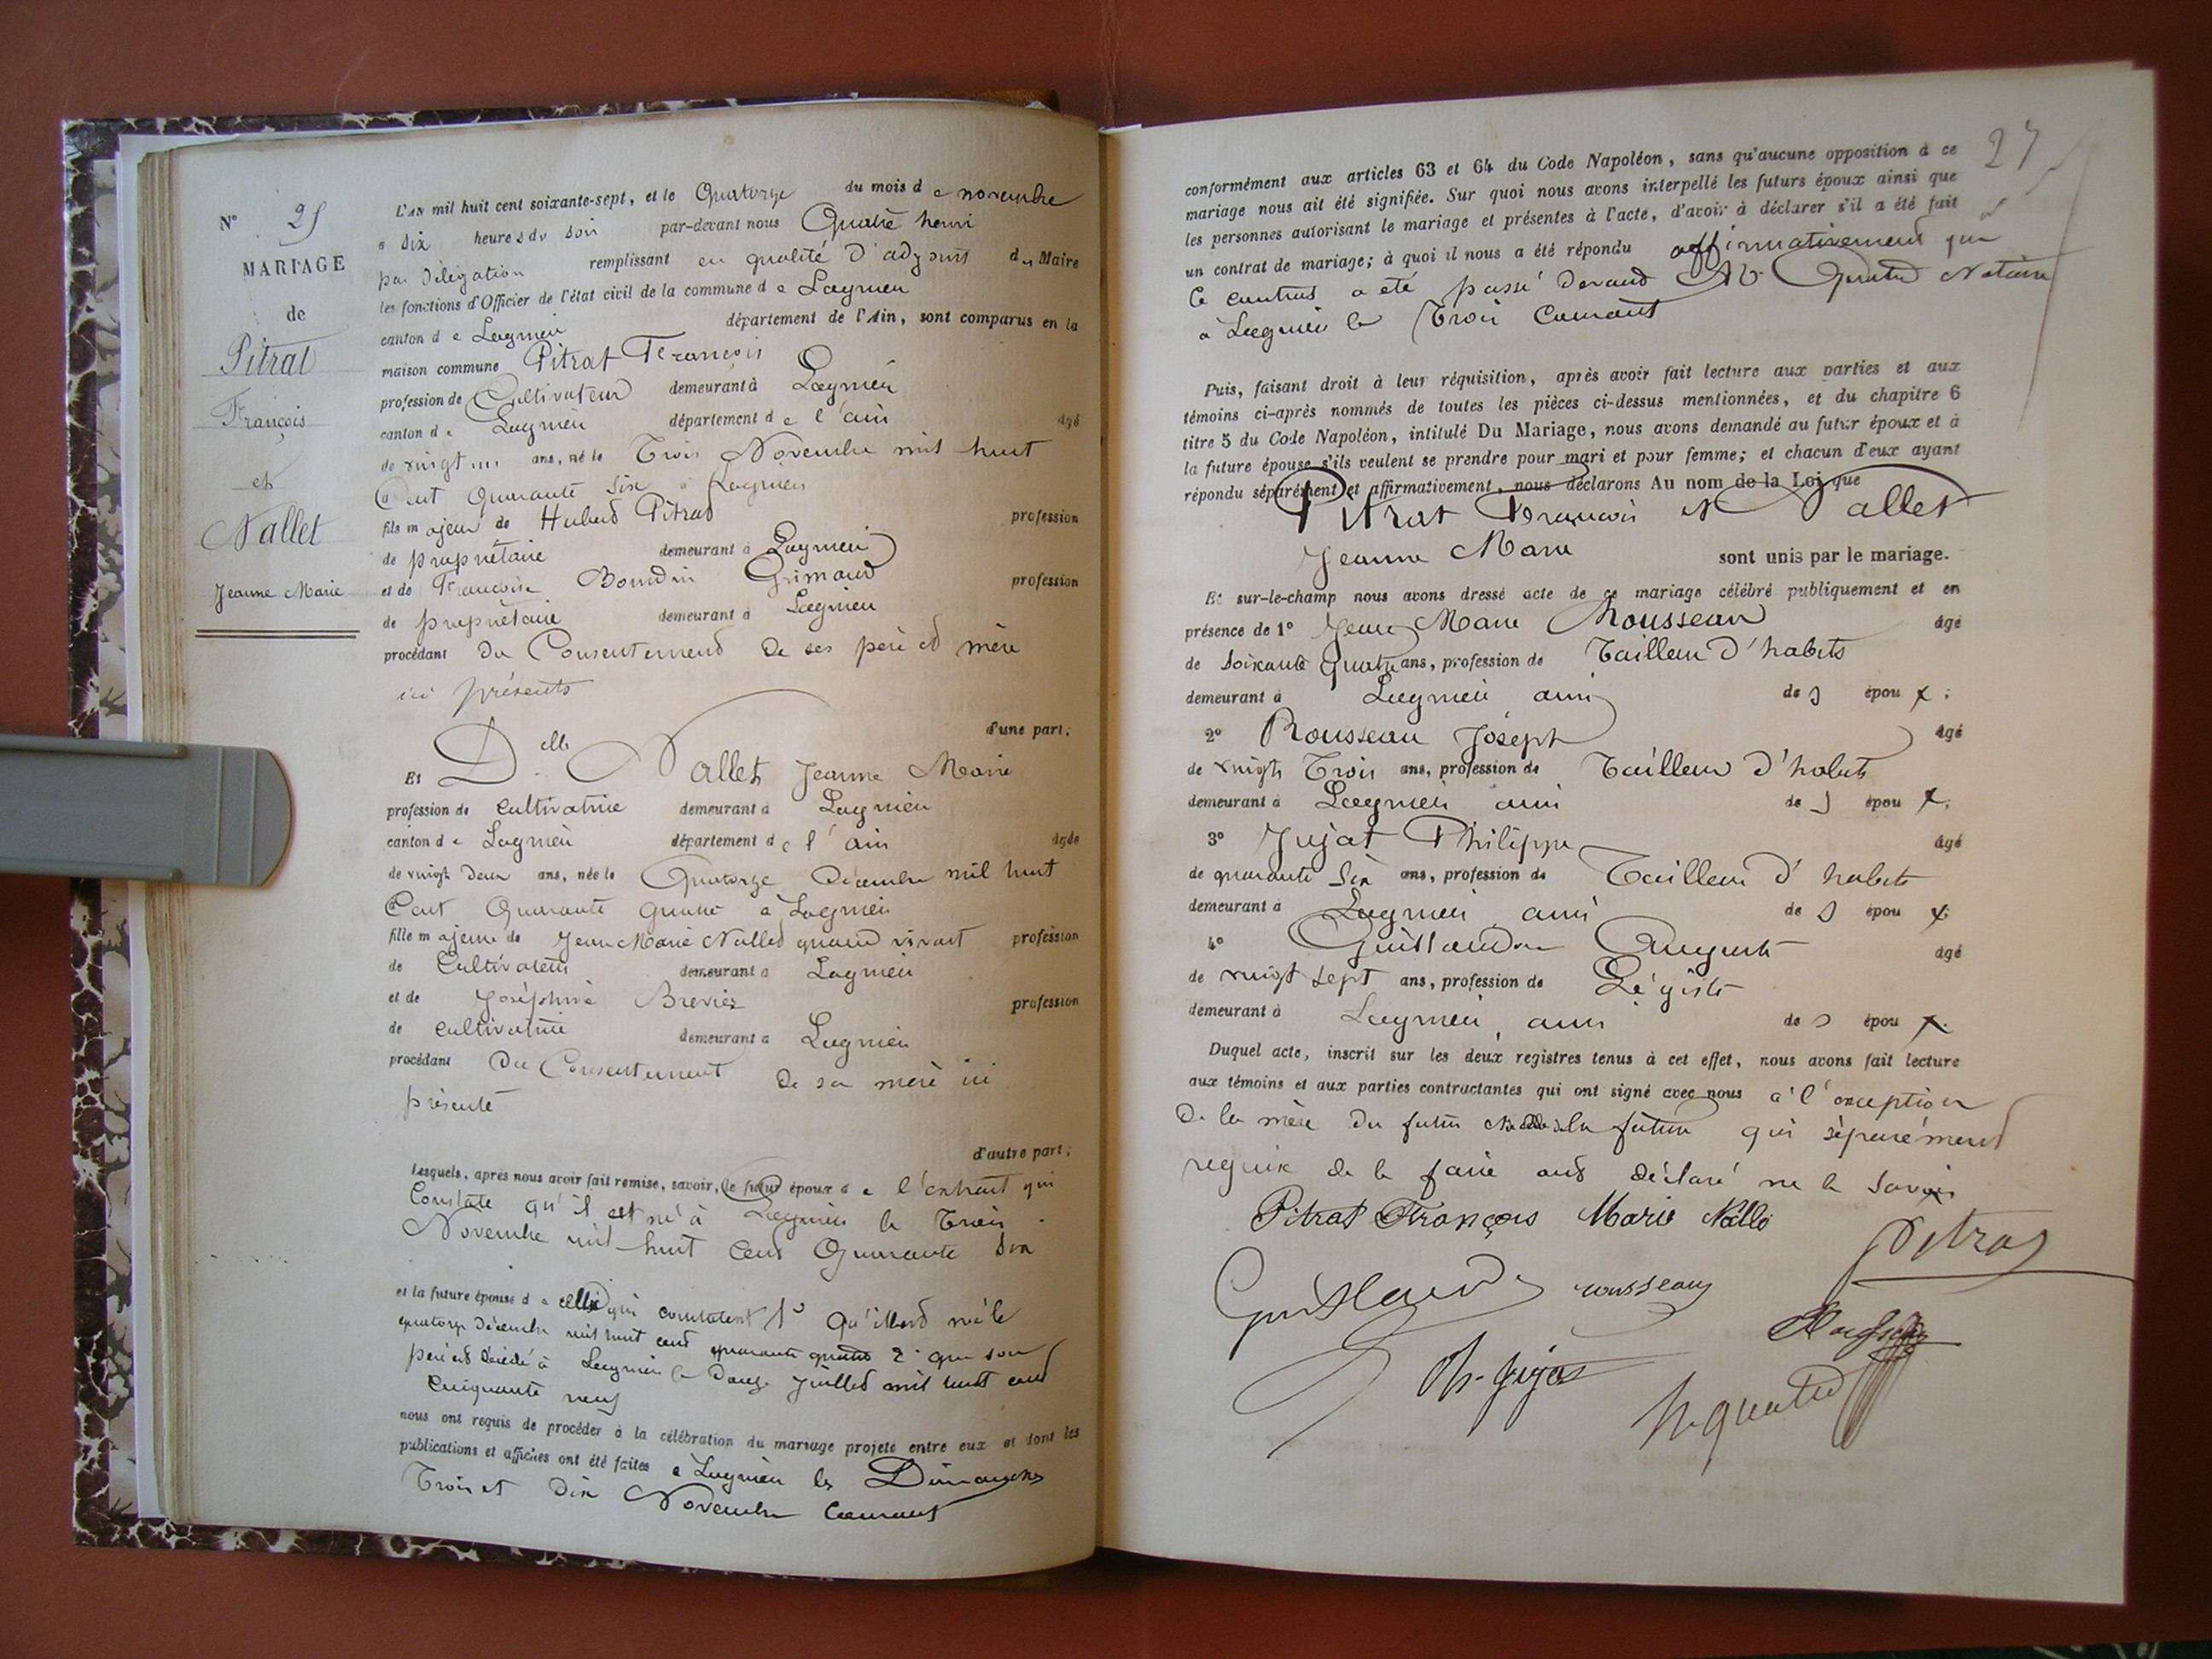 N° 25
MARIAGE
de
Pitrat
François
et
Nallet
Jeanne Marie
L'AN mil huit cent soixante-sept, et le Quatorze du mois de novembre
à dix heures du soir par-devant nous Quatre henri
par délégation remplissant en qualité d'adjoint du Maire
les fonctions d'Officier de l'état civil de la commune de Lagnieu
canton de Lagnieu département de l'Ain, sont comparus en la
maison commune Pitrat François
profession de Cultivateur demeurant à Lagnieu
canton de Lagnieu département de l'ain âgé
de vingt un ans, né le Trois Novembre mil huit
Cent Quarante six à Lagnieu
fils majeur de Hubert Pitrat profession
de propriétaire demeurant à Lagnieu
et de Françoise Bourdin Grimaud profession
de propriétaire demeurant à Lagnieu
procédant du Consentement de ses père et mère
ici présents
d'une part;
Et Delle Nallet Jeanne Marie
profession de cultivatrice demeurant à Lagnieu
canton de Lagnieu département de l'ain âgée
de vingt deux ans, née le Quatorze Décembre mil huit
Cent Quarante quatre à Lagnieu
fille majeure de Jean Marie Nallet quand vivait profession
de Cultivateur demeurant à Lagnieu
et de Joséphine Brevier profession
de cultivatrice demeurant à Lagnieu
procédant du Consentement de sa mère ici
présente
d'autre part;
Lesquels, après nous avoir fait remise, savoir, le futur époux de l'extrait qui
Constate qu'il est né à Lagnieu le Trois
Novembre mil huit cent Quarante six
et la future épouse de celle qui constatent 1° qu'elle est née le
quatorze décembre mil huit cent quarante quatre 2° que son
père est décédé à Lagnieu le Douze juillet mil huit cent
Cinquante neuf
nous ont requis de procéder à la célébration du mariage projeté entre eux et dont les
publications et affiches ont été faites à Lagnieu les Dimanches
Trois et dix Novembre Courant
27
conformément aux articles 63 et 64 du Code Napoléon, sans qu'aucune opposition à ce
mariage nous ait été signifiée. Sur quoi nous avons interpellé les futurs époux ainsi que
les personnes autorisant le mariage et présentes à l'acte, d'avoir à déclarer s'il a été fait
un contrat de mariage; à quoi il nous a été répondu affirmativement que
ce contrat a été passé devant Me Quatre Notaire
à Lagnieu le Trois Courant
Puis, faisant droit à leur réquisition, après avoir fait lecture aux parties et aux
témoins ci-après nommés de toutes les pièces ci-dessus mentionnées, et du chapitre 6
titre 5 du Code Napoléon, intitulé Du Mariage, nous avons demandé au futur époux et à
la future épouse s'ils veulent se prendre pour mari et pour femme; et chacun d'eux ayant
répondu séparément et affirmativement, nous déclarons Au nom de la Loi que
Pitrat François et Nallet
Jeanne Marie sont unis par le mariage.
Et sur-le-champ nous avons dressé acte de ce mariage célébré publiquement et en
présence de 1° Jean Marie Rousseau âgé
de soixante quatre ans, profession de Tailleur d'habits
demeurant à Lagnieu ami des époux;
2° Rousseau Joseph âgé
de vingt Trois ans, profession de Tailleur d'habits
demeurant à Lagnieu ami des époux;
3° Jujat Philippe âgé
de quarante six ans, profession de Tailleur d'habits
demeurant à Lagnieu ami des époux;
4° Guillaudon Auguste âgé
de vingt sept ans, profession de Légiste
demeurant à Lagnieu, ami des époux.
Duquel acte, inscrit sur les deux registres tenus à cet effet, nous avons fait lecture
aux témoins et aux parties contractantes qui ont signé avec nous à l'exception
de la mère du futur et de la future qui séparément
requise de le faire ont déclaré ne le savoir
Pitrat François Marie Nallé
Pitrat
rousseau
Ph. Jujat
h. quatre